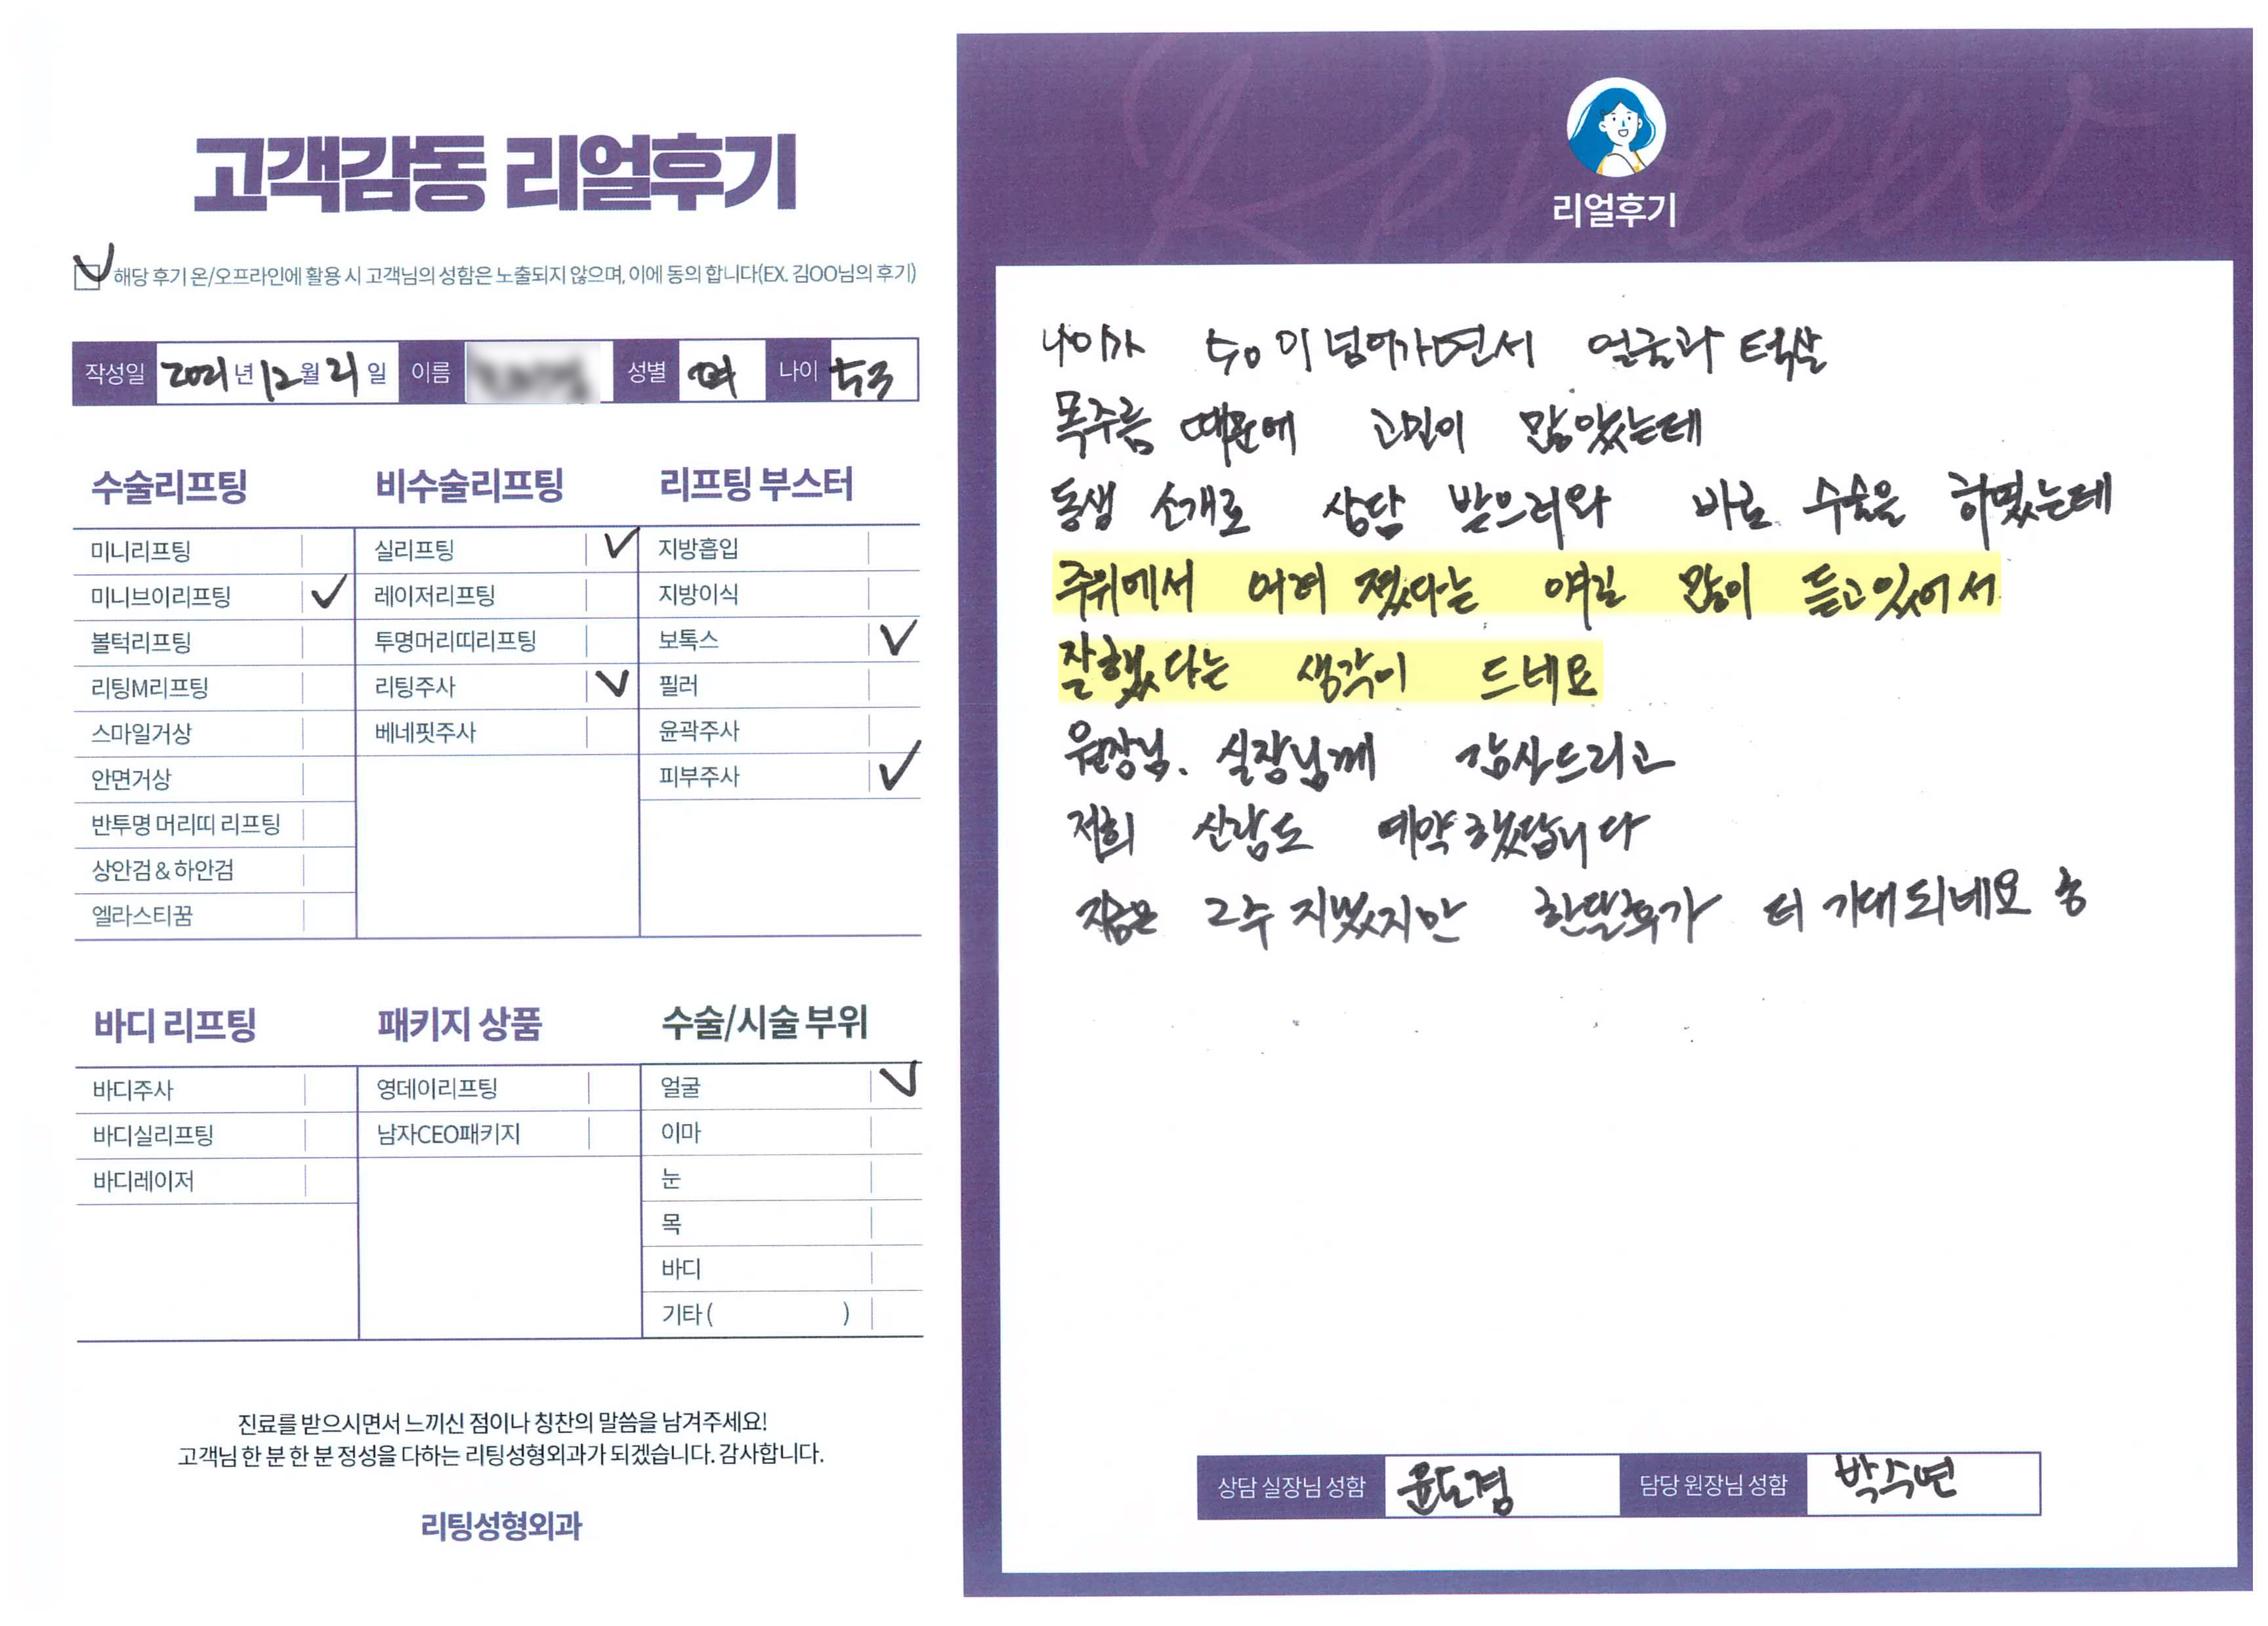 고객감동 리얼후기
해당 후기 온/오프라인에 활용 시 고객님의 성함은 노출되지 않으며, 이에 동의 합니다(EX. 김OO님의 후기)
작성일 2021년 12월 21일 이름 성별 여 나이 53
수술리프팅
미니리프팅
미니브이리프팅
볼턱리프팅
리팅M리프팅
스마일거상
안면거상
반투명 머리띠 리프팅
상안검 & 하안검
엘라스티꿈
비수술리프팅
실리프팅
레이저리프팅
투명머리띠리프팅
리팅주사
베네핏주사
리프팅 부스터
지방흡입
지방이식
보톡스
필러
윤곽주사
피부주사
바디 리프팅
바디주사
바디실리프팅
바디레이저
패키지 상품
영데이리프팅
남자CEO패키지
수술/시술 부위
얼굴
이마
눈
목
바디
기타 ( )
진료를 받으시면서 느끼신 점이나 칭찬의 말씀을 남겨주세요!
고객님 한 분 한 분 정성을 다하는 리팅성형외과가 되겠습니다. 감사합니다.
리팅성형외과
Review
리얼후기
나이가 50이 넘어가면서 얼굴과 턱살
목주름 때문에 고민이 많았는데
동생 소개로 상담 받으러와 바로 수술을 하였는데
주위에서 어려 졌다는 얘길 많이 듣고있어서
잘했다는 생각이 드네요
원장님. 실장님께 감사드리고
저희 신랑도 예약했답니다
지금은 2주 지났지만 한달후가 더 기대되네요
상담 실장님 성함 윤도경 담당 원장님 성함 박수연